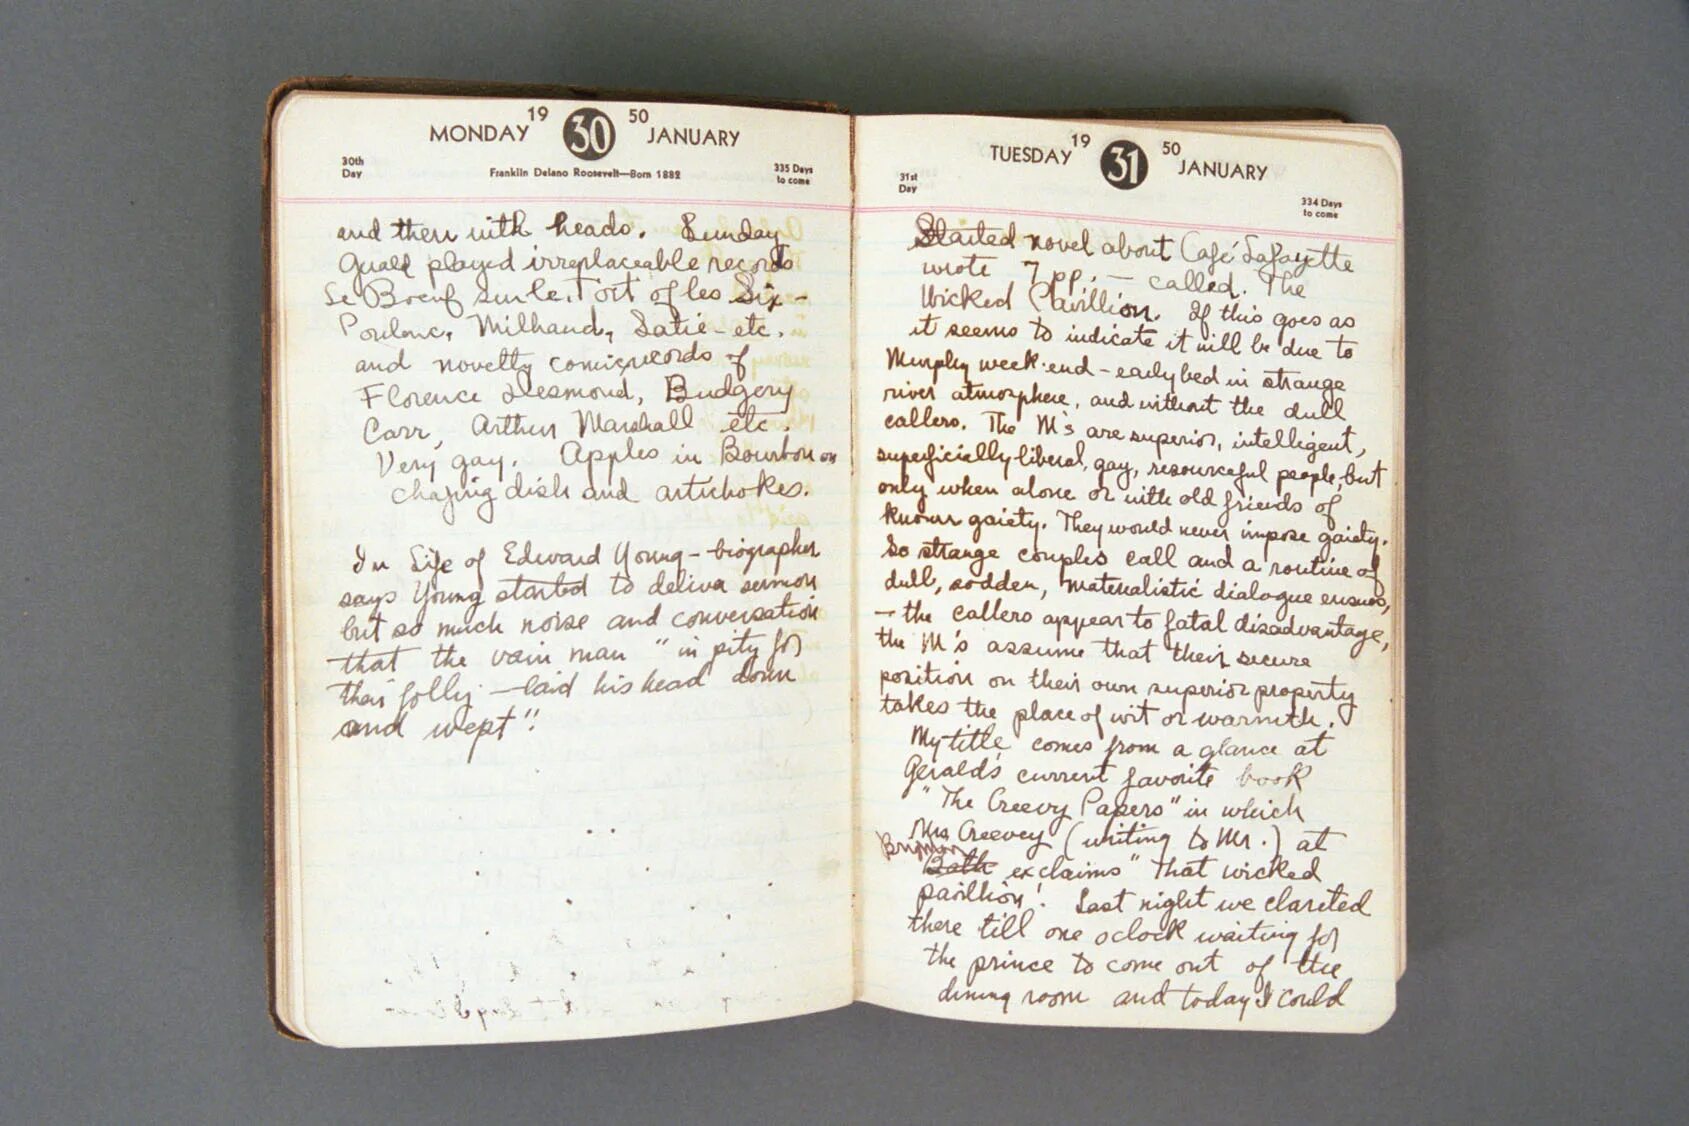 MONDAY 19 30 50 JANUARY
30th Day
Franklin Delano Roosevelt—Born 1882
335 Days to come
and then with heads. Sunday
Gerald played irreplaceable records
Le Boeuf sur le Toit of les Six –
Poulenc, Milhaud, Satie – etc.
and novelty comic records of
Florence Desmond, Budgery
Carr, Arthur Marshall etc.
Very gay. Apples in Bourbon on
chafing dish and artichokes.
In Life of Edward Young – biographer
says Young started to deliver sermon
but so much noise and conversation
that the vain man "in pity for
their folly – laid his head down
and wept".
TUESDAY 19 31 50 JANUARY
31st Day
334 Days to come
Started novel about Café Lafayette
wrote 7 pp. – called. The
Wicked Pavillion. If this goes as
it seems to indicate it will be due to
Murphy week-end – early bed in strange
river atmosphere, and without the dull
callers. The M's are superior, intelligent,
superficially liberal, gay, resourceful people, but
only when alone or with old friends of
known gaiety. They would never impose gaiety.
So strange couples call and a routine of
dull, sodden, materialistic dialogue ensues,
– the callers appear to fatal disadvantage,
the M's assume that their secure
position on their own superior property
takes the place of wit or warmth.
My title comes from a glance at
Gerald's current favorite book
"The Creevy Papers" in which
Mrs Creevey (writing to Mr.) at
Brighton
Bath exclaims "That wicked
pavillion! Last night we clareted
there till one oclock waiting for
the prince to come out of the
dining room and today I could